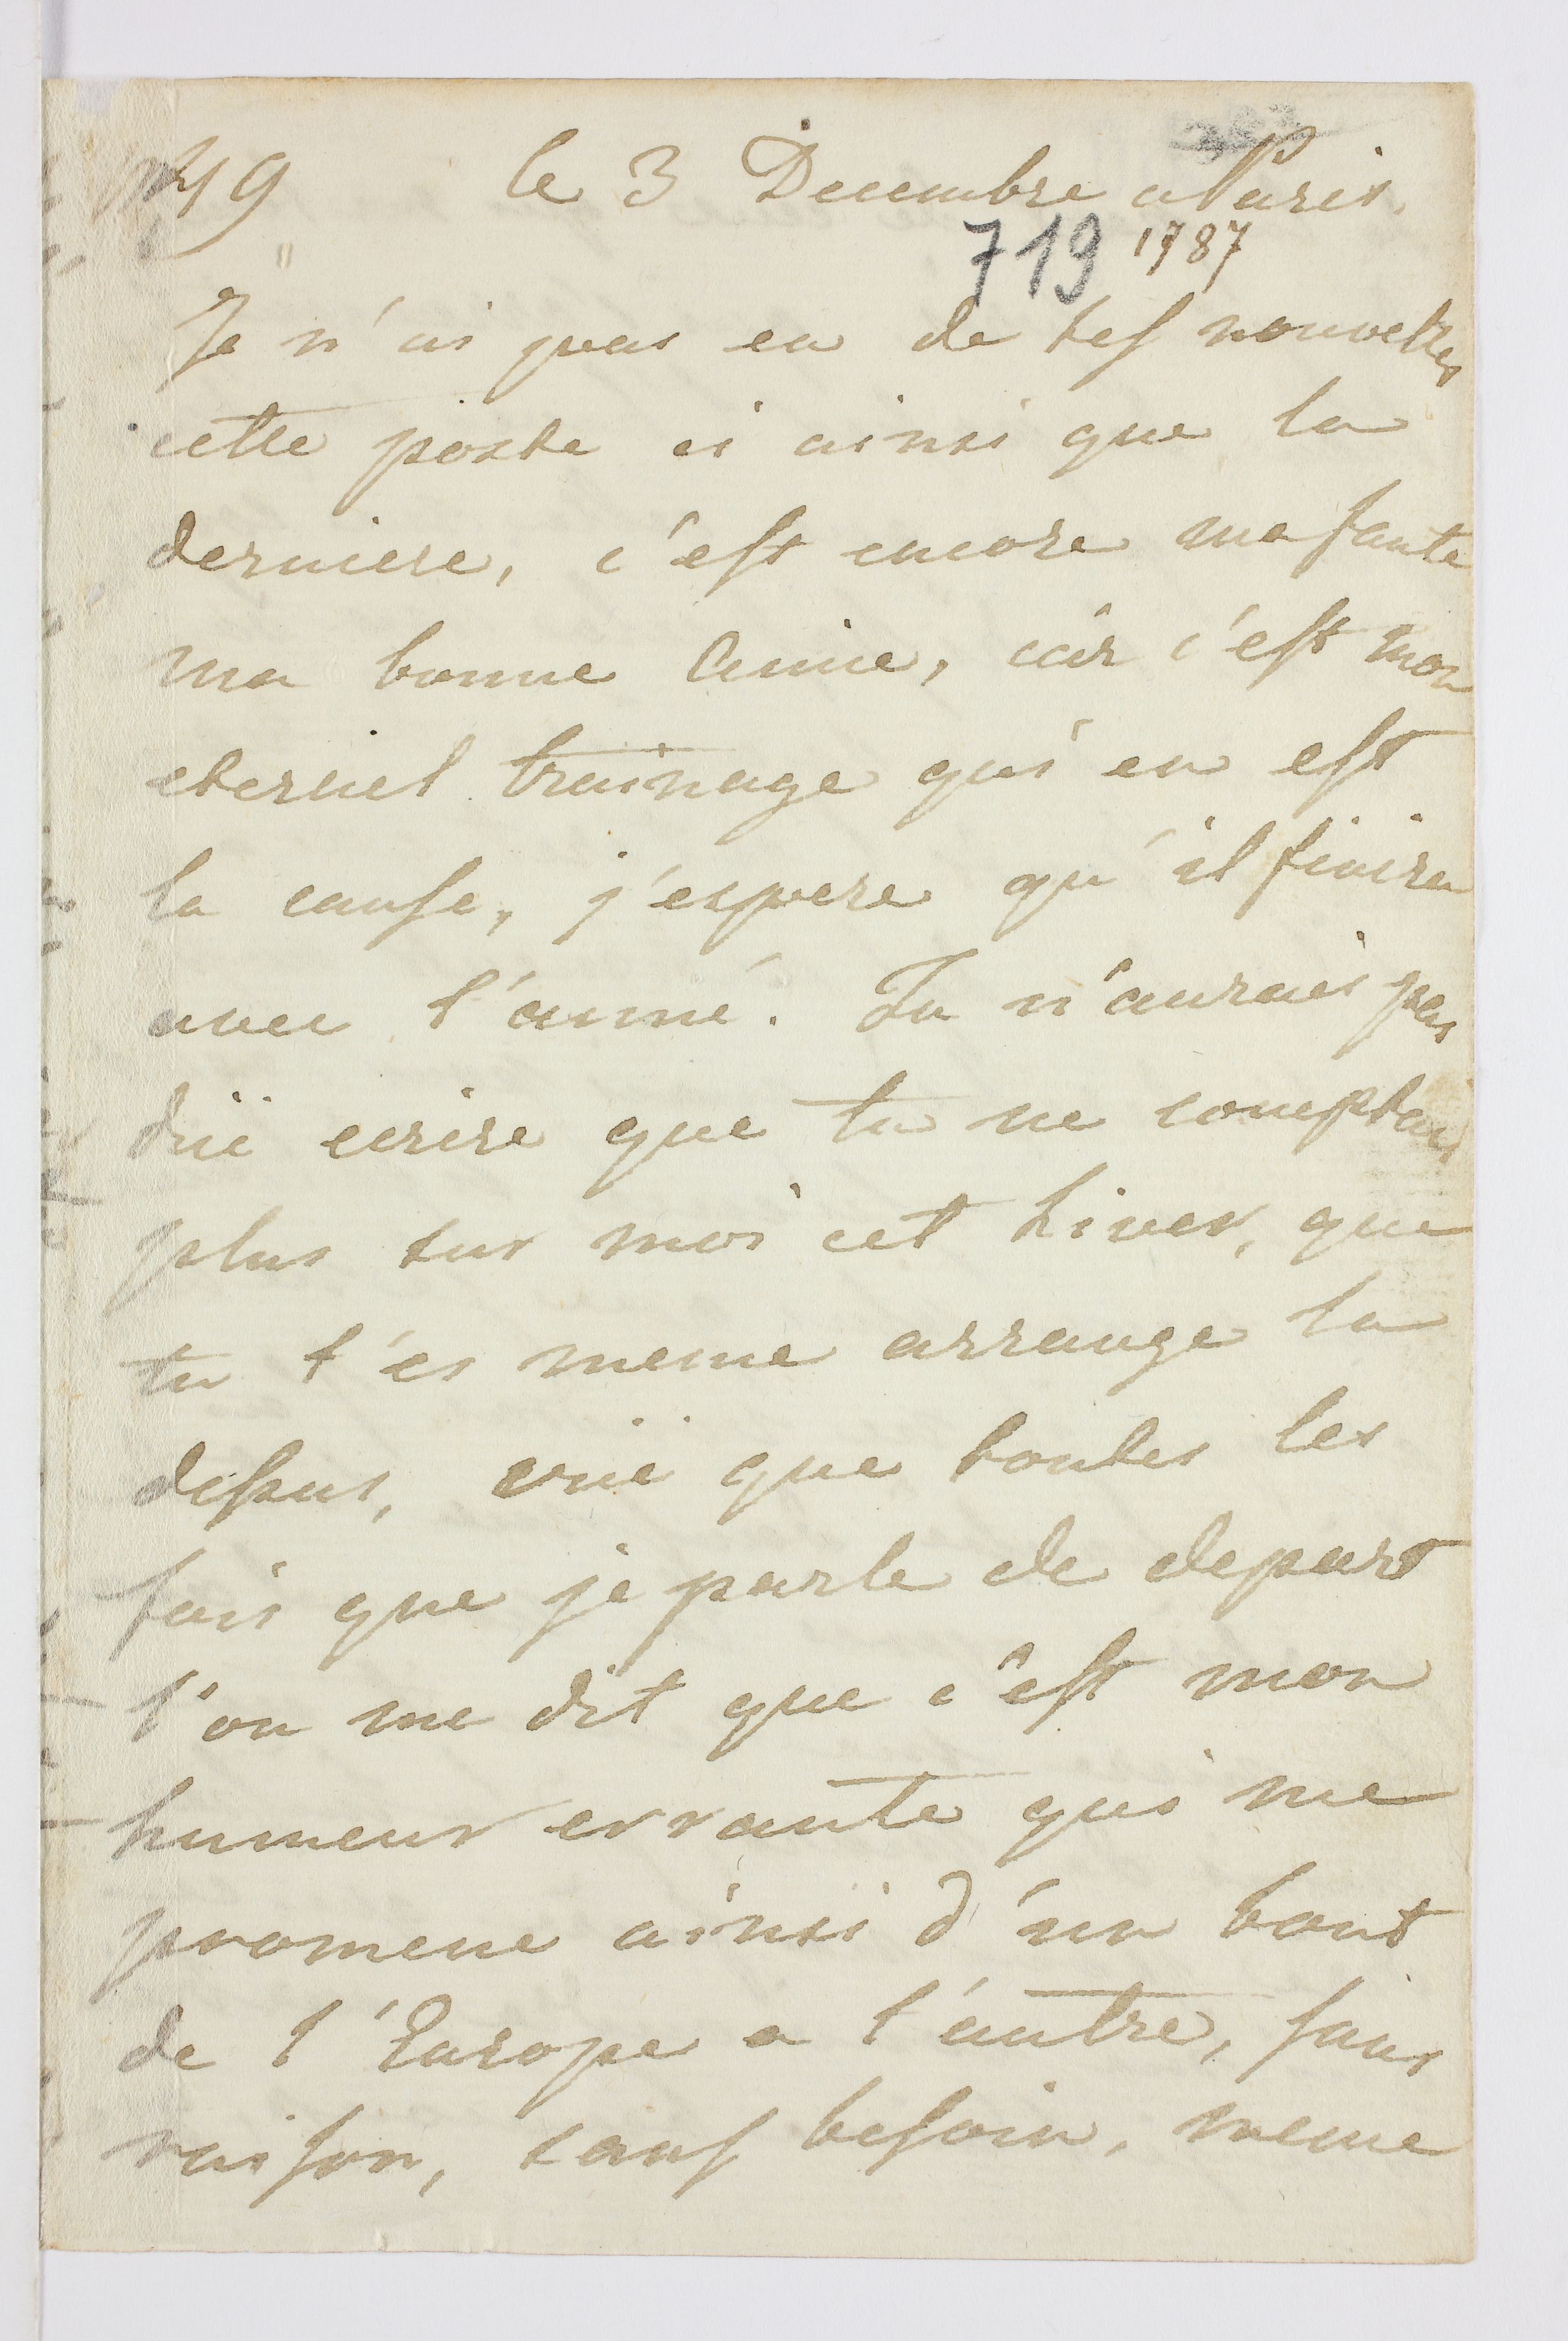 49 le 3 Decembre a Paris.
719 1787
Je n'ai pas eu de tes nouvelles
cette poste ci ainsi que la
derniere, c'est encore ma faute
ma bonne Amie, car c'est mon
eternel trainage qui en est
la cause, j'espere qu'il finira
avec l'anné. Tu n'aurais pas
düe ecrire que tu ne comptais
plus sur moi cet hiver, que
tu t'es meme arrange la
dessus, vüe que toutes les
fois que je parle de depart
l'on me dit que c'est mon
humeur errante qui me
promene ainsi d'un bout
de l'Europe a l'autre, sans
raison, sans besoin, meme